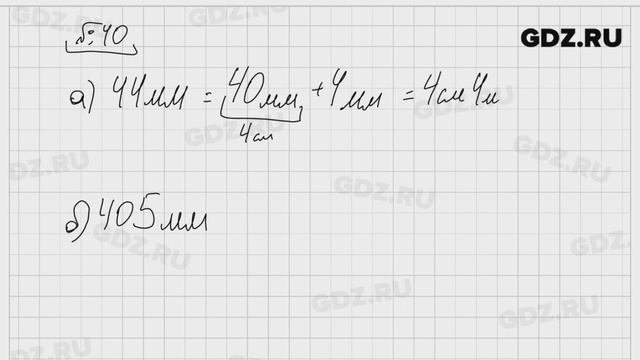 №40
GDZ.RU
а) 44мм = 40мм + 4мм = 4см 4м
4см
б) 405мм
GDZ.RU
GDZ.RU
GDZ.RU
GDZ.RU
GDZ.RU
GDZ.RU
GDZ.RU
GDZ.RU
GDZ.RU
GDZ.RU
GDZ.RU
GDZ.RU